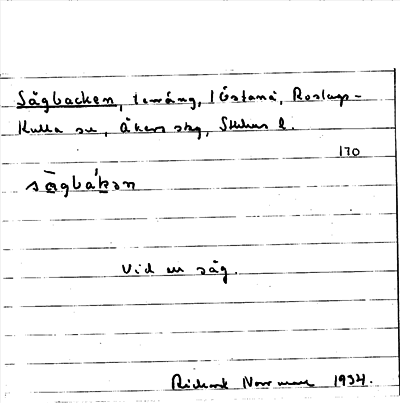 Sågbacken, terräng, i Östanå, Roslags-
Kulla sn, Åkers skg, Sthlms l.
170
sågbakən
Vid en såg.
Rickard Norrman 1934.